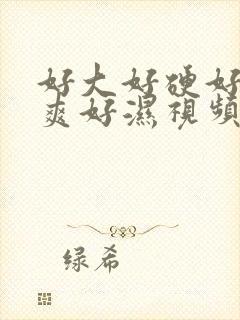 好大好硬好
爽好濕視頻
绿希